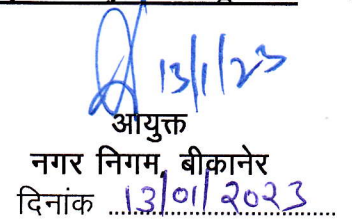 13/1/23
आयुक्त
नगर निगम, बीकानेर
दिनांक 13/01/2023